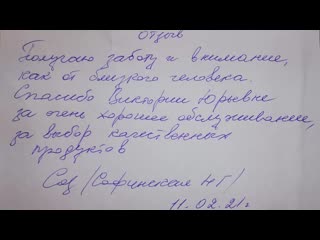 Отзыв
Получаю заботу и внимание,
как от близкого человека.
Спасибо Виктории Юрьевне
за очень хорошее обслуживание,
за выбор качественных
продуктов
Соф /Софинская НГ/
11.02.21г.